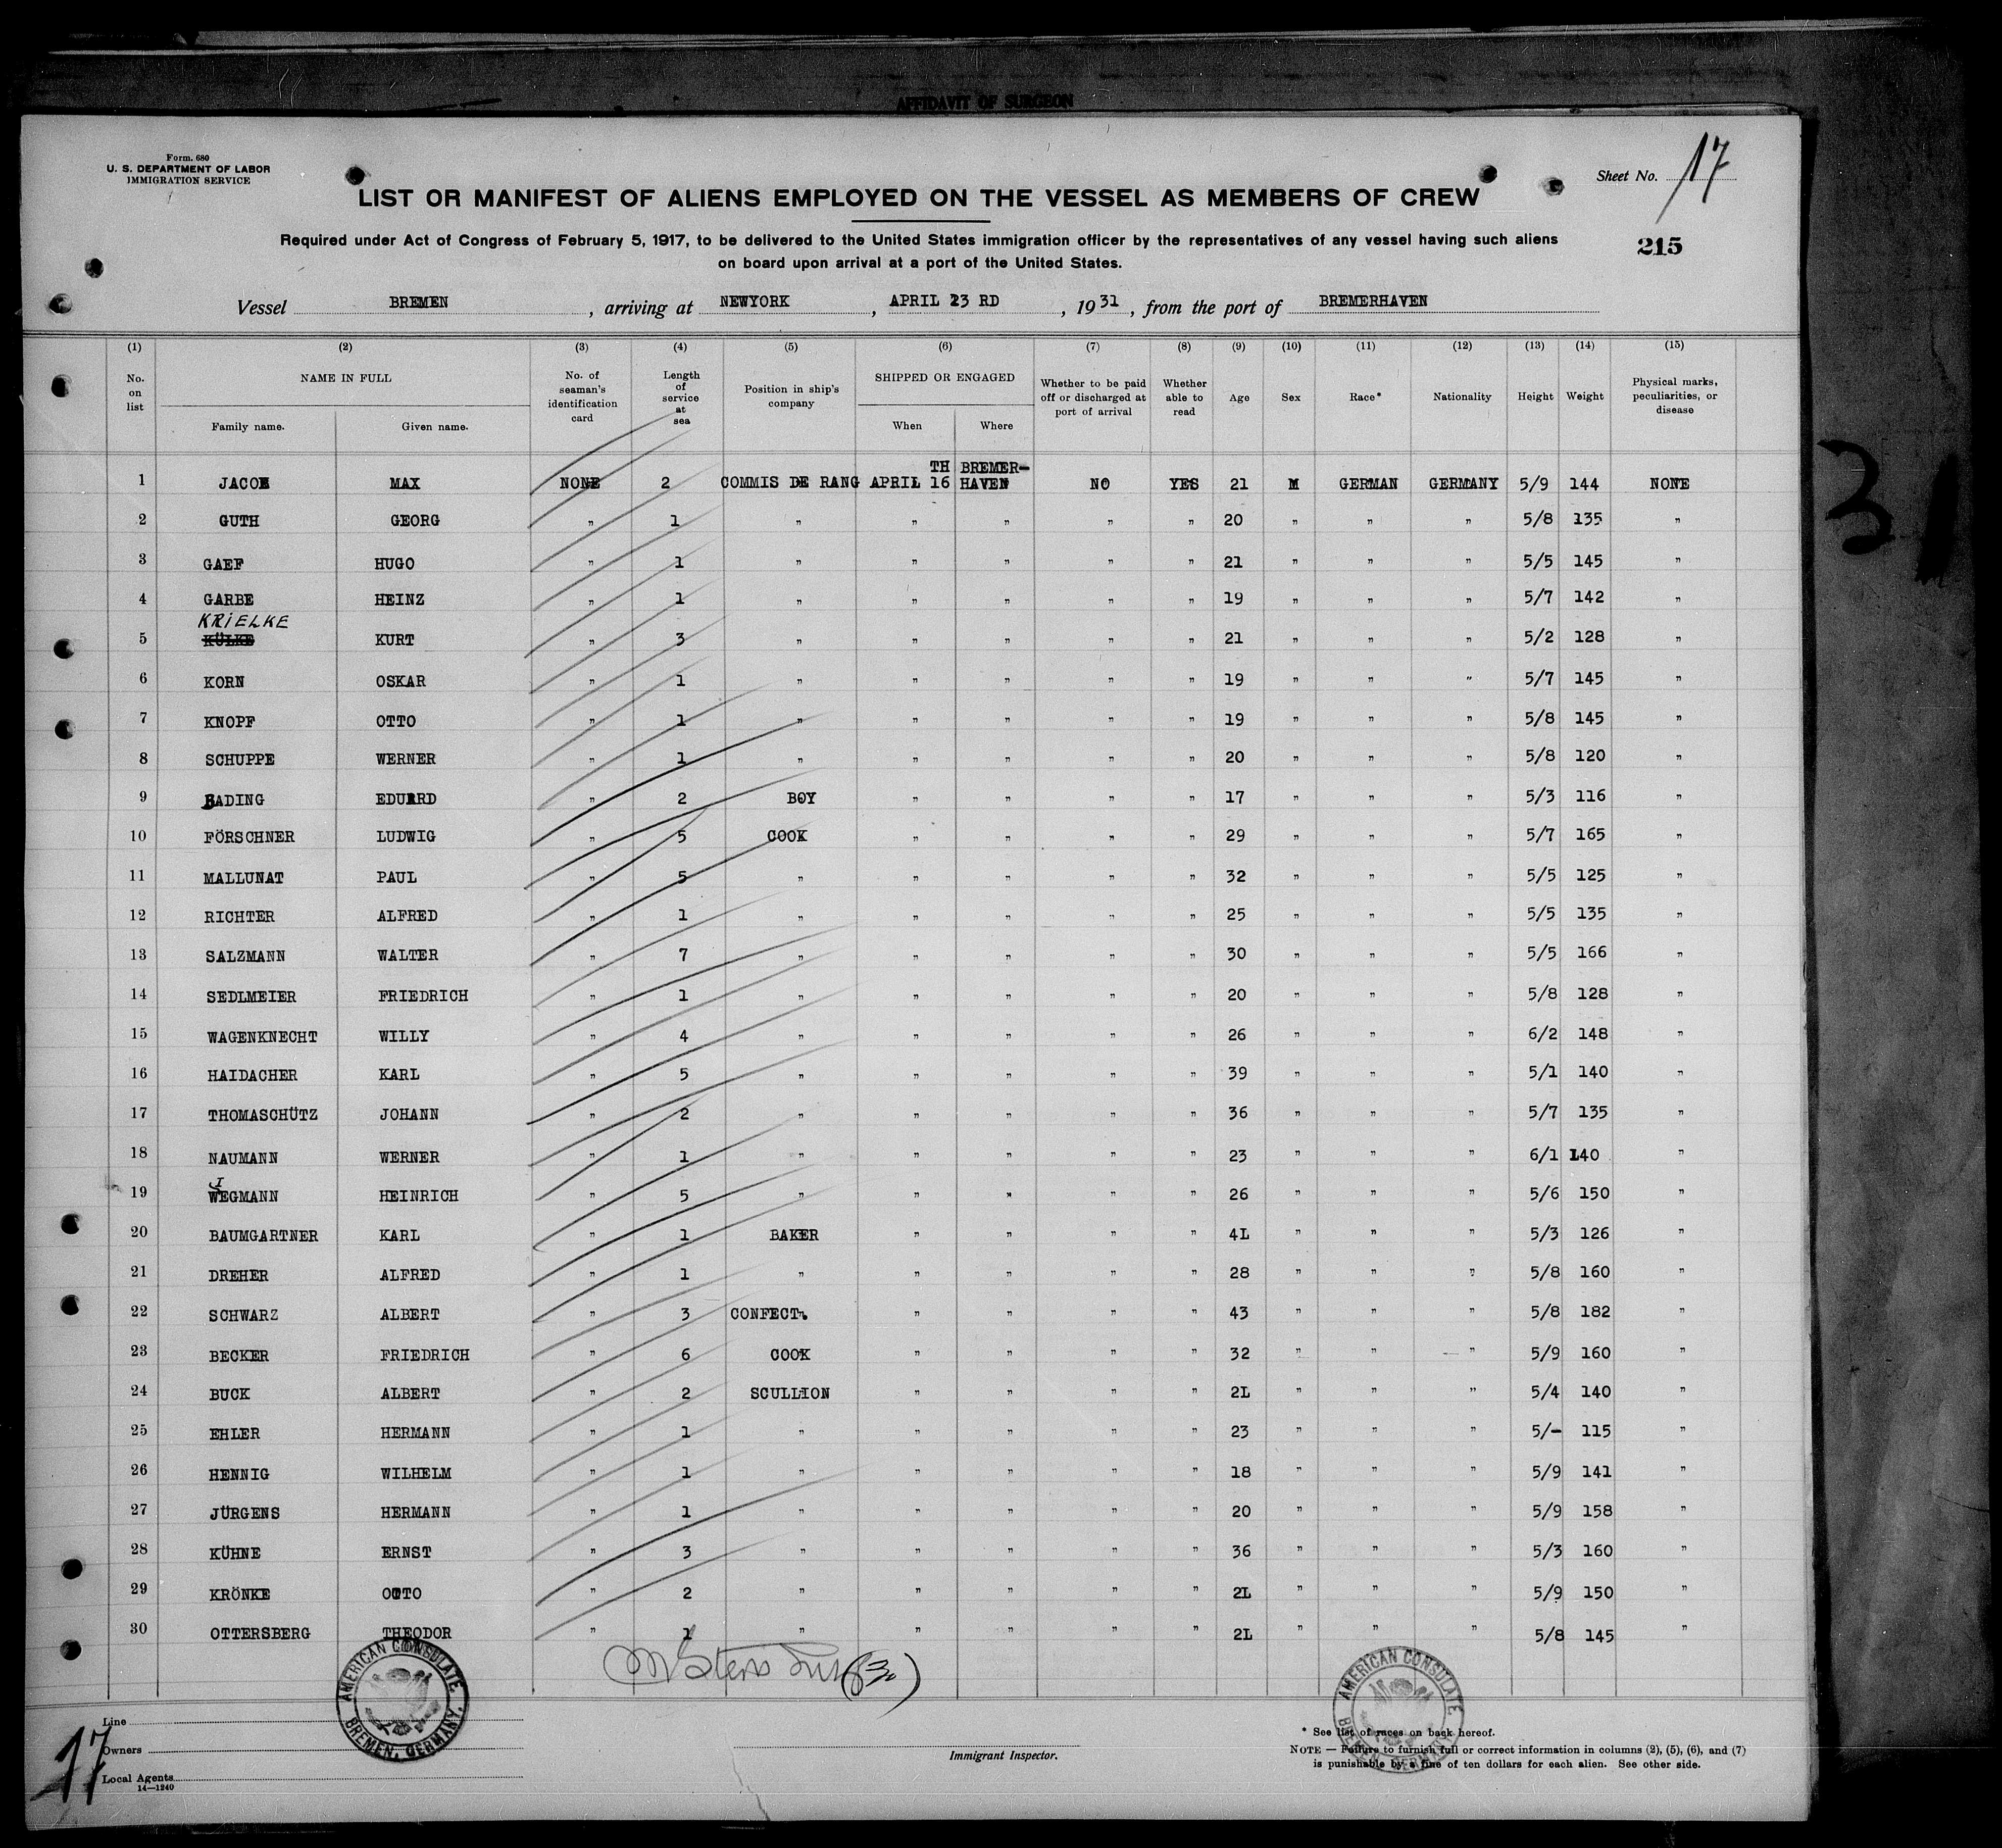 AFFIDAVIT OF SURGEON
Form. 680
U. S. DEPARTMENT OF LABOR
IMMIGRATION SERVICE
Sheet No. 17
LIST OR MANIFEST OF ALIENS EMPLOYED ON THE VESSEL AS MEMBERS OF CREW
Required under Act of Congress of February 5, 1917, to be delivered to the United States immigration officer by the representatives of any vessel having such aliens
on board upon arrival at a port of the United States.
215
Vessel BREMEN, arriving at NEWYORK, APRIL 23 RD, 1931, from the port of BREMERHAVEN
(1) (2) (3) (4) (5) (6) (7) (8) (9) (10) (11) (12) (13) (14) (15)
No. on list NAME IN FULL Family name. Given name. No. of seaman's identification card Length of service at sea Position in ship's company SHIPPED OR ENGAGED When Where Whether to be paid off or discharged at port of arrival Whether able to read Age Sex Race* Nationality Height Weight Physical marks, peculiarities, or disease
1 JACOB MAX NONE 2 COMMIS DE RANG APRIL 16 TH BREMER-HAVEN NO YES 21 M GERMAN GERMANY 5/9 144 NONE
2 GUTH GEORG " 1 " " " " " 20 " " " 5/8 135 "
3 GAEF HUGO " 1 " " " " " 21 " " " 5/5 145 "
4 GARBE HEINZ " 1 " " " " " 19 " " " 5/7 142 "
KRIELKE
5 KÜLKE KURT " 3 " " " " " 21 " " " 5/2 128 "
6 KORN OSKAR " 1 " " " " " 19 " " " 5/7 145 "
7 KNOPF OTTO " 1 " " " " " 19 " " " 5/8 145 "
8 SCHUPPE WERNER " 1 " " " " " 20 " " " 5/8 120 "
9 BADING EDUARD " 2 BOY " " " " 17 " " " 5/3 116 "
10 FÖRSCHNER LUDWIG " 5 COOK " " " " 29 " " " 5/7 165 "
11 MALLUNAT PAUL " 5 " " " " " 32 " " " 5/5 125 "
12 RICHTER ALFRED " 1 " " " " " 25 " " " 5/5 135 "
13 SALZMANN WALTER " 7 " " " " " 30 " " " 5/5 166 "
14 SEDLMEIER FRIEDRICH " 1 " " " " " 20 " " " 5/8 128 "
15 WAGENKNECHT WILLY " 4 " " " " " 26 " " " 6/2 148 "
16 HAIDACHER KARL " 5 " " " " " 39 " " " 5/1 140 "
17 THOMASCHÜTZ JOHANN " 2 " " " " " 36 " " " 5/7 135 "
18 NAUMANN WERNER " 1 " " " " " 23 " " " 6/1 140 "
I
19 WEGMANN HEINRICH " 5 " " " " " 26 " " " 5/6 150 "
20 BAUMGARTNER KARL " 1 BAKER " " " " 4L " " " 5/3 126 "
21 DREHER ALFRED " 1 " " " " " 28 " " " 5/8 160 "
22 SCHWARZ ALBERT " 3 CONFECT. " " " " 43 " " " 5/8 182 "
23 BECKER FRIEDRICH " 6 COOK " " " " 32 " " " 5/9 160 "
24 BUCK ALBERT " 2 SCULLION " " " " 2L " " " 5/4 140 "
25 EHLER HERMANN " 1 " " " " " 23 " " " 5/- 115 "
26 HENNIG WILHELM " 1 " " " " " 18 " " " 5/9 141 "
27 JÜRGENS HERMANN " 1 " " " " " 20 " " " 5/9 158 "
28 KÜHNE ERNST " 3 " " " " " 36 " " " 5/3 160 "
29 KRÖNKE OTTO " 2 " " " " " 2L " " " 5/9 150 "
30 OTTERSBERG THEODOR " 1 " " " " " 2L " " " 5/8 145 "
AMERICAN CONSULATE
BREMEN, GERMANY.
AMERICAN CONSULATE
BREMEN, GERMANY
Line
Owners
Local Agents
14—1240
17
Immigrant Inspector.
* See list of races on back hereof.
NOTE — Failure to furnish full or correct information in columns (2), (5), (6), and (7)
is punishable by a fine of ten dollars for each alien. See other side.
31